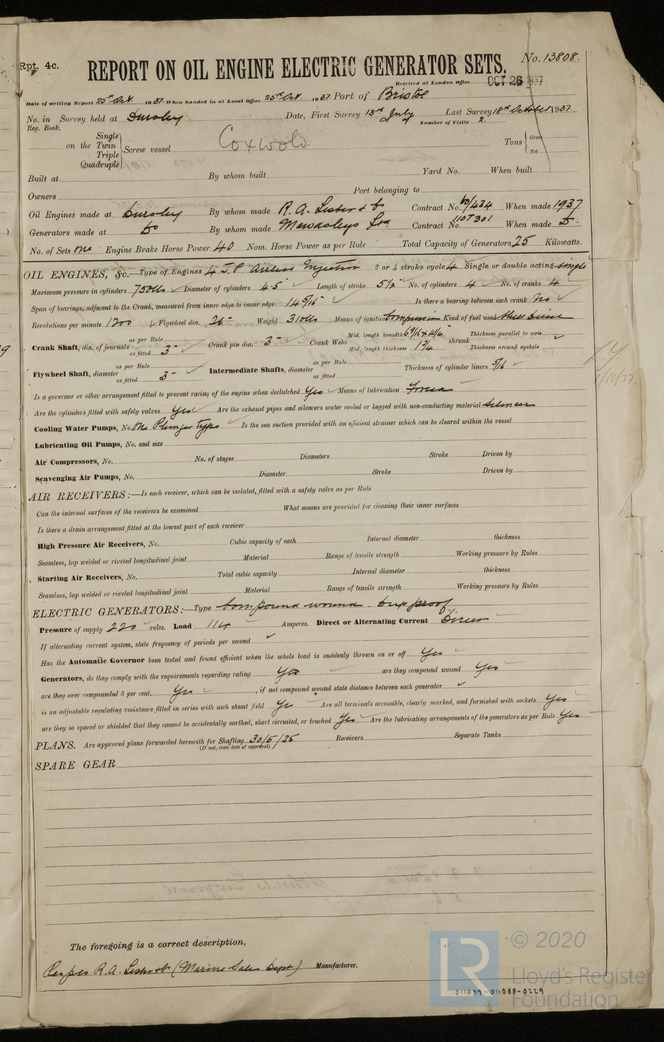 Rpt. 4c.
REPORT ON OIL ENGINE ELECTRIC GENERATOR SETS.
No. 13808.
Received at London Office OCT 26 1937
Date of writing Report 25th Oct 1937. When handed in at Local Office 25th Oct. 1937 Port of Bristol
No. in Survey held at Dursley Date, First Survey 13th July Last Survey 18th October 1937
Reg. Book. Number of Visits 2
Single
on the Twin
Triple
Quadruple
Screw vessel Coxwold Tons Gross
Net
Built at By whom built Yard No. When built
Owners Port belonging to
Oil Engines made at Dursley By whom made R. A. Lister & Co Contract No. 60/434 When made 1937
Generators made at Do By whom made Mawdsleys Ltd Contract No. 110T301 When made Do.
No. of Sets One Engine Brake Horse Power 40 Nom. Horse Power as per Rule Total Capacity of Generators 25 Kilowatts.
OIL ENGINES, &c.—Type of Engines 4 J.P. Airless Injection 2 or 4 stroke cycle 4 Single or double acting single
Maximum pressure in cylinders 750 lbs Diameter of cylinders 4.5" Length of stroke 5 1/2 No. of cylinders 4 No. of cranks 4
Span of bearings, adjacent to the Crank, measured from inner edge to inner edge 14 5/16" Is there a bearing between each crank No
Revolutions per minute 1200 Flywheel dia. 26" Weight 310 lbs Means of ignition Compression Kind of fuel used Shell Diesel
Crank Shaft, dia. of journals as per Rule
as fitted 3" Crank pin dia. 3" Crank Webs Mid. length breadth
Mid. length thickness 1 3/4 shrunk Thickness parallel to axis
Thickness around eyehole
Flywheel Shaft, diameter as per Rule
as fitted 3" Intermediate Shafts, diameter as per Rule
as fitted Thickness of cylinder liners 5/16
Is a governor or other arrangement fitted to prevent racing of the engine when declutched Yes Means of lubrication Forced
Are the cylinders fitted with safety valves Yes Are the exhaust pipes and silencers water cooled or lagged with non-conducting material silencer
Cooling Water Pumps, No. One Plunger type Is the sea suction provided with an efficient strainer which can be cleared within the vessel
Lubricating Oil Pumps, No. and size
Air Compressors, No. No. of stages Diameters Stroke Driven by
Scavenging Air Pumps, No. Diameter Stroke Driven by
AIR RECEIVERS:—Is each receiver, which can be isolated, fitted with a safety valve as per Rule
Can the internal surfaces of the receivers be examined What means are provided for cleaning their inner surfaces
Is there a drain arrangement fitted at the lowest part of each receiver
High Pressure Air Receivers, No. Cubic capacity of each Internal diameter thickness
Seamless, lap welded or riveted longitudinal joint Material Range of tensile strength Working pressure by Rules
Starting Air Receivers, No. Total cubic capacity Internal diameter thickness
Seamless, lap welded or riveted longitudinal joint Material Range of tensile strength Working pressure by Rules
ELECTRIC GENERATORS:—Type Compound wound. Drip proof.
Pressure of supply 220 volts. Load 114 Amperes. Direct or Alternating Current Direct
If alternating current, state frequency of periods per second
Has the Automatic Governor been tested and found efficient when the whole load is suddenly thrown on or off Yes
Generators, do they comply with the requirements regarding rating Yes are they compound wound Yes
are they over compounded 5 per cent. Yes, if not compound wound state distance between each generator
is an adjustable regulating resistance fitted in series with each shunt field Yes Are all terminals accessible, clearly marked, and furnished with sockets Yes
are they so spaced or shielded that they cannot be accidentally earthed, short circuited, or touched Yes Are the lubricating arrangements of the generators as per Rule Yes
PLANS. Are approved plans forwarded herewith for Shafting 30/5/35 Receivers Separate Tanks
(If not, state date of approval)
SPARE GEAR
The foregoing is a correct description,
R.A. Lister & Co (Marine Sales Dept) Manufacturer.
© 2020
Lloyd's Register
Foundation
LR
011089-011088-0229